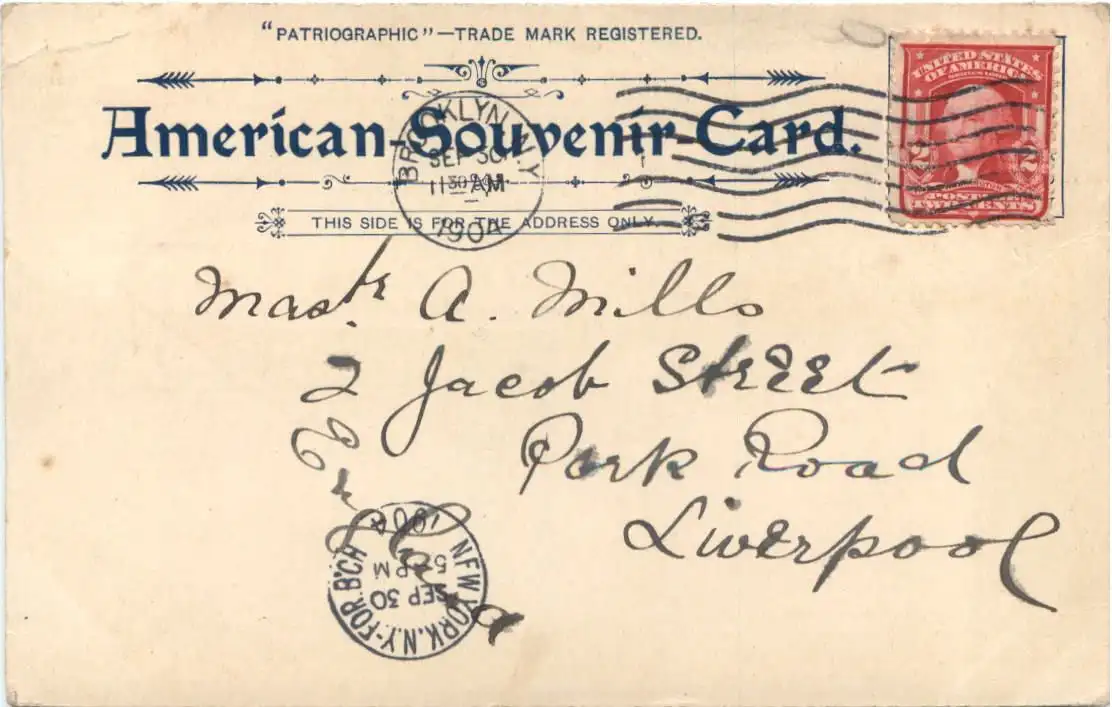 "PATRIOGRAPHIC"—TRADE MARK REGISTERED.
American-Souvenir-Card.
THIS SIDE IS FOR THE ADDRESS ONLY.
BROOKLYN, N.Y.
SEP 30
11 30 AM
1904
UNITED STATES
OF AMERICA
2 2
POSTAGE
TWO CENTS
Mastr. A. Mills
2 Jacob Street
Park Road
Liverpool
England
NEW YORK, N.Y.-FOR. B'CH
SEP 30
5 PM
1904